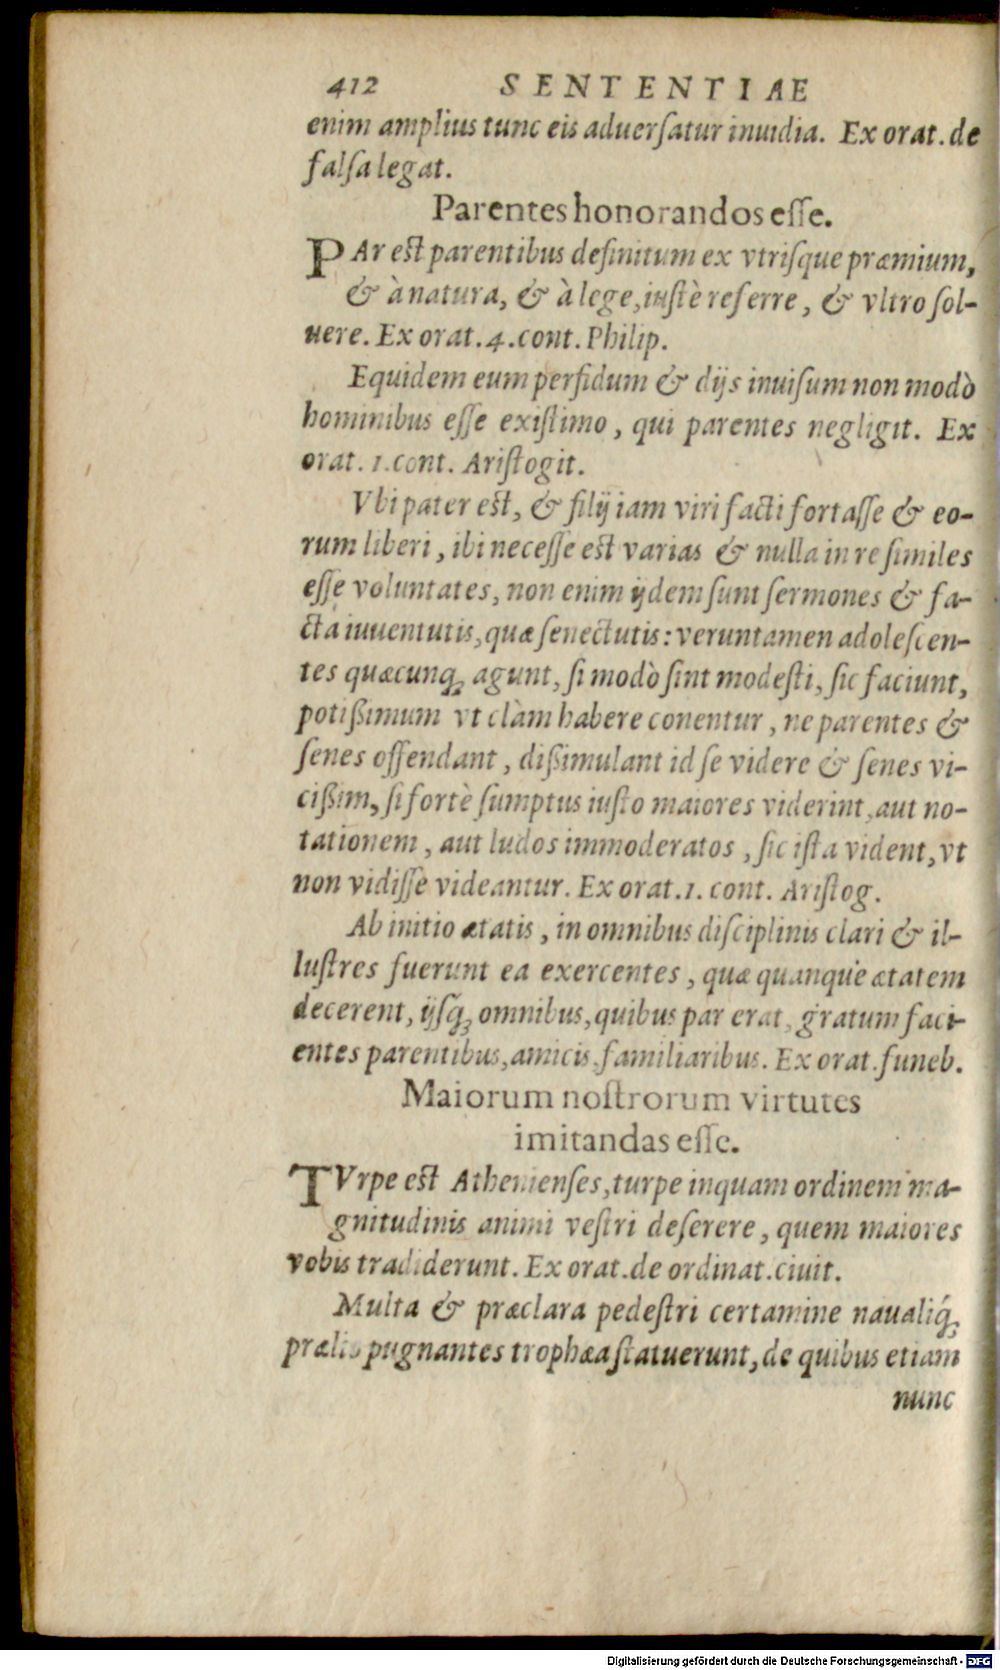 412 SENTENTIAE
enim amplius tunc eis aduerſatur inuidia. Ex orat. de
falſa legat.
Parentes honorandos eſſe.
PAr est parentibus definitum ex vtriſque præmium,
& à natura, & à lege, iustè referre, & vltro ſol-
uere. Ex orat. 4. cont. Philip.
Equidem eum perfidum & dijs inuiſum non modò
hominibus eſſe exiſtimo, qui parentes negligit. Ex
orat. 1. cont. Ariſtogit.
Vbi pater est, & filij iam viri facti fortaſſe & eo-
rum liberi, ibi neceſſe est varias & nulla in re ſimiles
eſſe voluntates, non enim ijdem ſunt ſermones & fa-
cta iuuentutis, quæ ſenectutis: veruntamen adoleſcen-
tes quæcunq; agunt, ſi modò ſint modeſti, ſic faciunt,
potißimum vt clàm habere conentur, ne parentes &
ſenes offendant, dißimulant id ſe videre & ſenes vi-
cißim, ſi fortè ſumptus iuſto maiores viderint, aut no-
tationem, aut ludos immoderatos, ſic iſta vident, vt
non vidiſſe videantur. Ex orat. 1. cont. Ariſtog.
Ab initio ætatis, in omnibus diſciplinis clari & il-
luſtres fuerunt ea exercentes, quæ quanque ætatem
decerent, ijſq́; omnibus, quibus par erat, gratum faci-
entes parentibus, amicis, familiaribus. Ex orat. funeb.
Maiorum noſtrorum virtutes
imitandas eſſe.
TVrpe est Athenienſes, turpe inquam ordinem ma-
gnitudinis animi veſtri deſerere, quem maiores
vobis tradiderunt. Ex orat. de ordinat. ciuit.
Multa & præclara pedeſtri certamine naualiq́;
prælio pugnantes trophæa ſtatuerunt, de quibus etiam
nunc
Digitalisierung gefördert durch die Deutsche Forschungsgemeinschaft - DFG